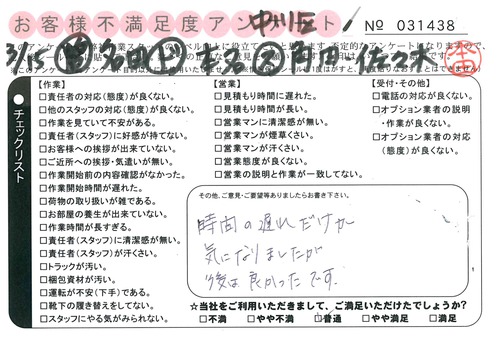 お客様不満足度アンケート 中川区
№ 031438
3/15 名 本名 角田 佐々木
●チェックリスト
【作業】
□責任者の対応(態度)が良くない。
□他のスタッフの対応(態度)が良くない。
□作業を見ていて不安がある。
□責任者(スタッフ)に好感が持てない。
□お客様への挨拶が出来ていない。
□ご近所への挨拶・気遣いが無い。
□作業開始前の内容確認がなかった。
□作業開始時間が遅れた。
□荷物の取り扱いが雑である。
□お部屋の養生が出来ていない。
□作業時間が長すぎる。
□責任者(スタッフ)に清潔感が無い。
□責任者(スタッフ)が汗くさい。
□トラックが汚い。
□梱包資材が汚い。
□運転が不安(下手)である。
□靴下の履き替えをしてない。
□スタッフにやる気がみられない。
【営業】
□見積もり時間に遅れた。
□見積もり時間が長い。
□営業マンに清潔感が無い。
□営業マンが煙草くさい。
□営業マンが汗くさい。
□営業態度が良くない。
□営業の説明と作業が一致してない。
【受付・その他】
□電話の対応が良くない。
□オプション業者の説明
・作業が良くない。
□オプション業者の対応
(態度)が良くない。
その他、ご意見・ご要望等ありましたらお書き下さい。
時間の遅れだけが
気になりましたが
後は良かったです。
☆当社をご利用いただきまして、ご満足いただけたでしょうか?
□不満 □やや不満 □普通 □やや満足 □満足